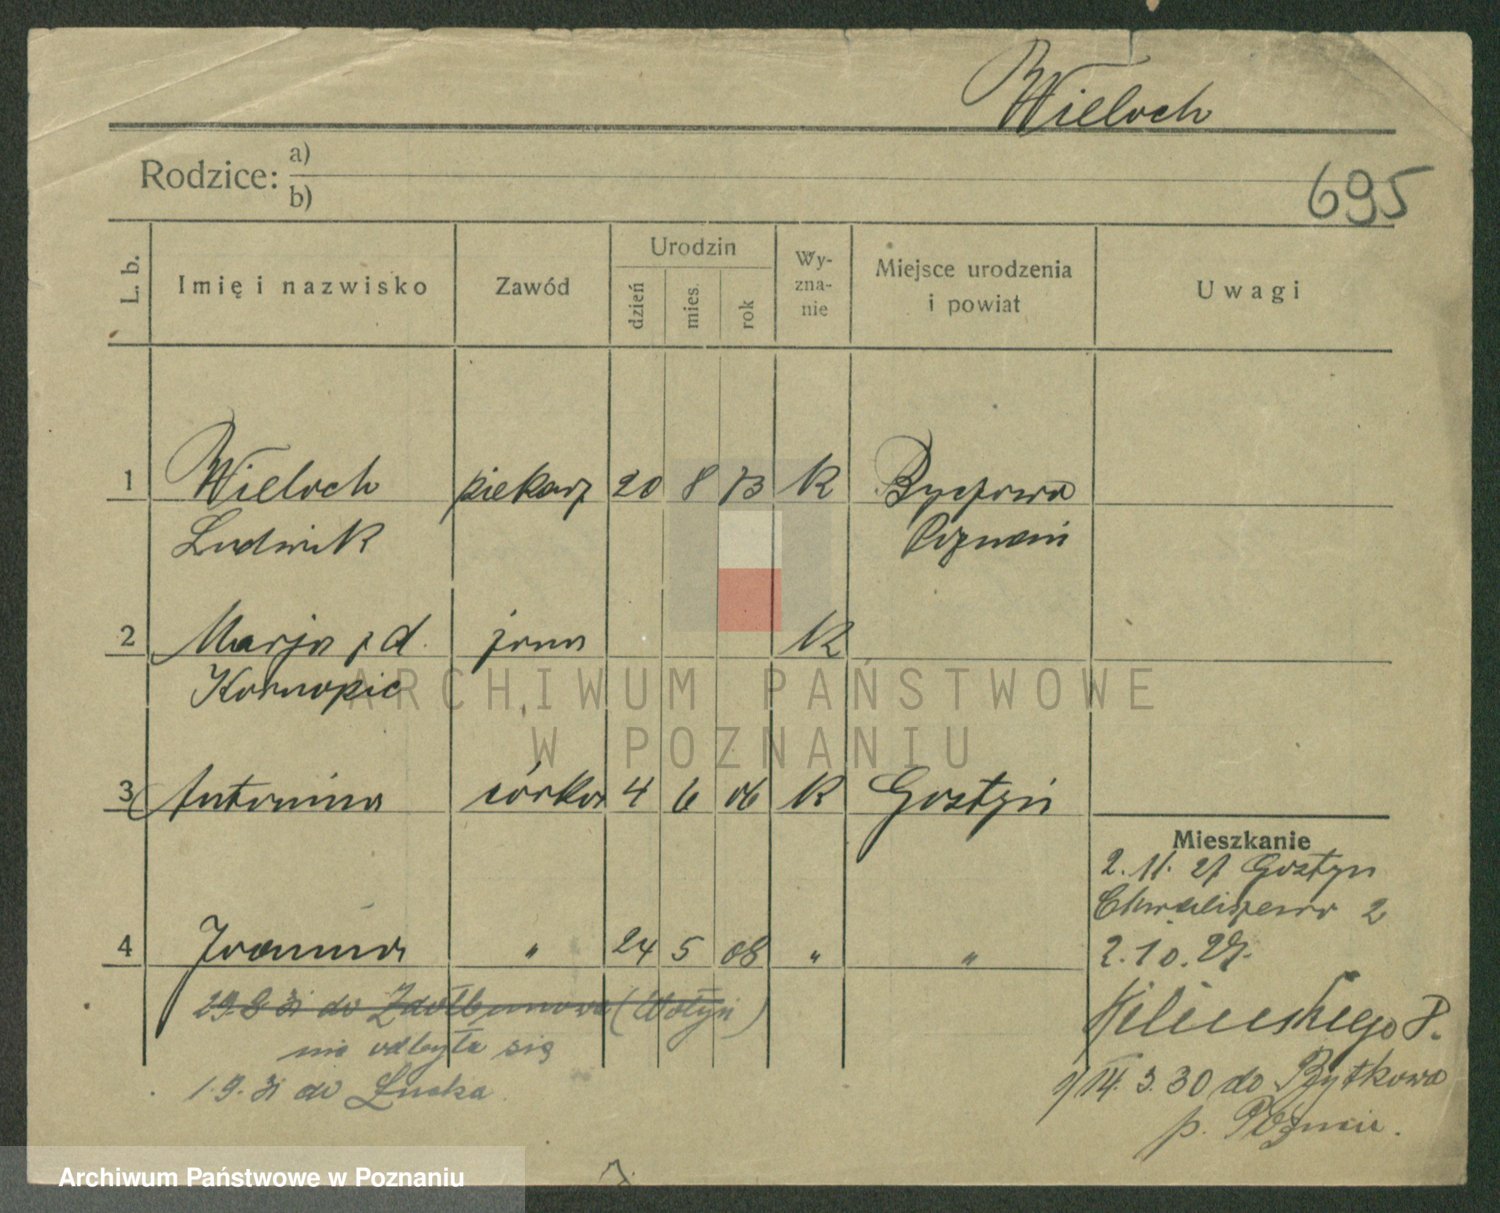 Wieloch
Rodzice: a)
b)
695
L. b.
Imię i nazwisko
Zawód
Urodzin
dzień
mies.
rok
Wy-
zna-
nie
Miejsce urodzenia
i powiat
Uwagi
1 Wieloch piekarz 20 8 73 K
Ludwik Poznań
2 Marja zd. żona K
3 Antonina córka 4 6 06 K Gostyń
Mieszkanie
2. 11. 27 Gostyn
2
4 Joanna " 24 5 08 " "
2. 10. 29.
29. 8 31 do Zdołbunowa (Wołyń)
Kilińskiego 8.
nie odbyła się
1. 9. 31 do Łucka
1/ 14. 3. 30 do Bytkowa
p. Poznań.
ARCHIWUM PAŃSTWOWE
W POZNANIU
Archiwum Państwowe w Poznaniu